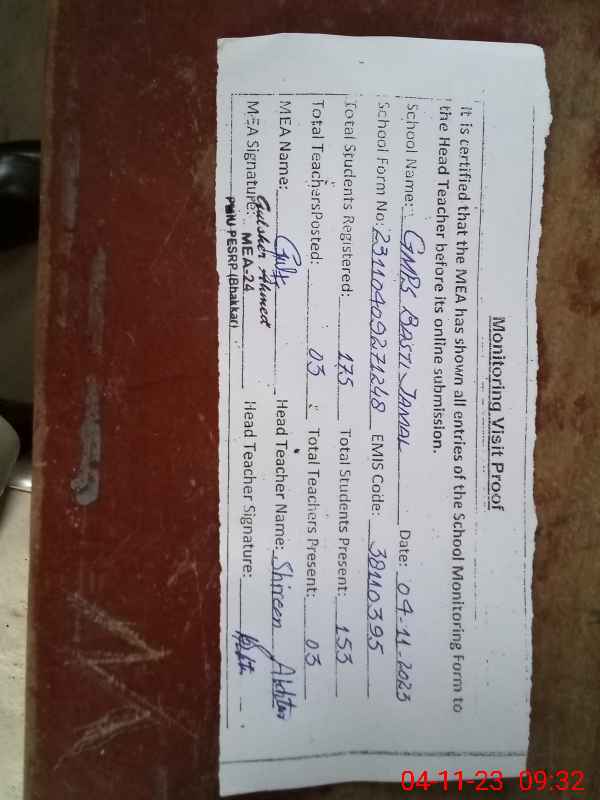 Monitoring Visit Proof
It is certified that the MEA has shown all entries of the School Monitoring Form to
the Head Teacher before its online submission.
School Name: GMPS BASTI JAMAL Date: 04-11-2023
School Form No: 23110409271248 EMIS Code: 38110395
Total Students Registered: 175 Total Students Present: 153
Total TeachersPosted: 03 Total Teachers Present: 03
MEA Name: Head Teacher Name: Shireen Akhtar
MEA Signature: Head Teacher Signature:
Gulsher Ahmed
MEA-24
PMIU PESRP (Bhakkar)
04-11-23 09:32